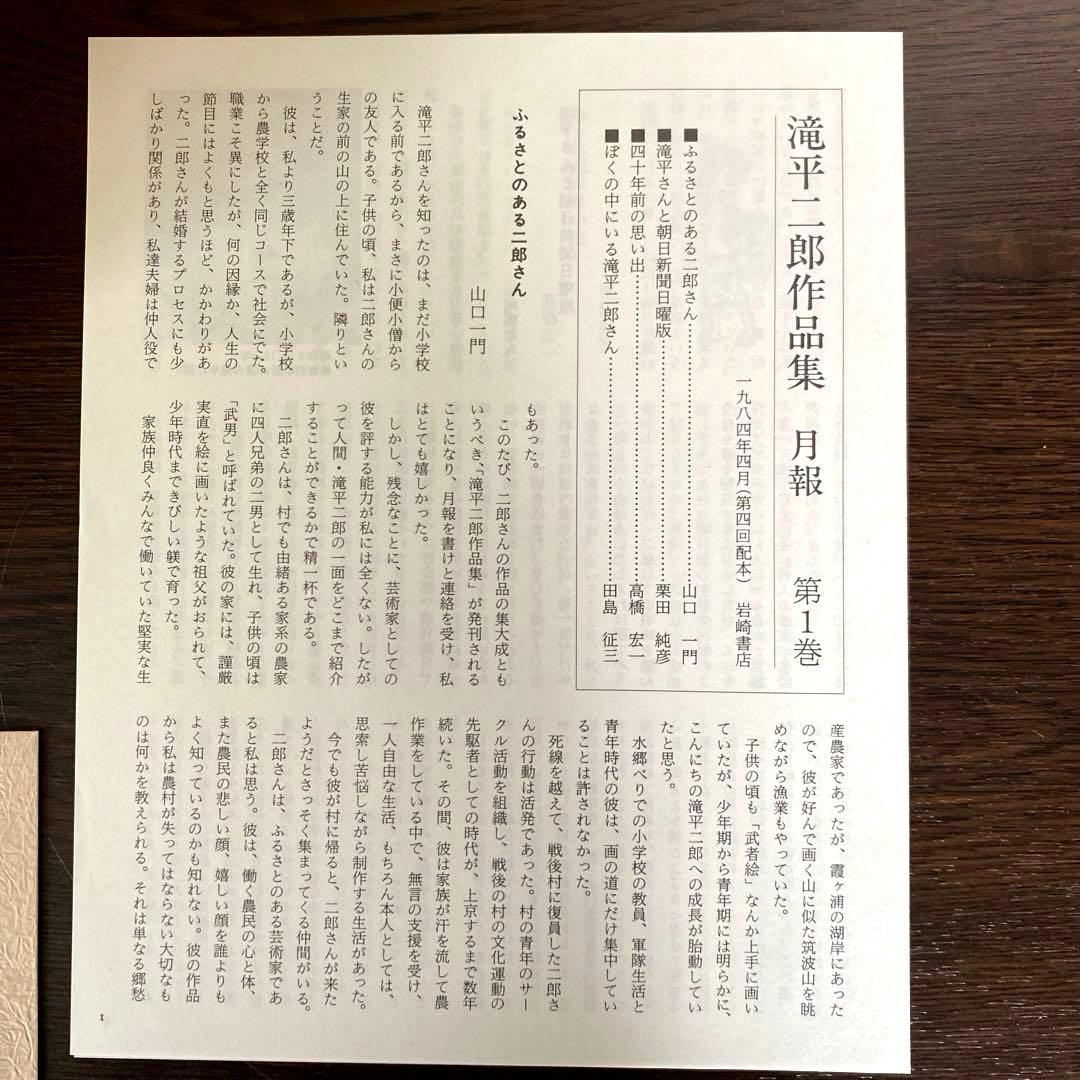 滝平二郎作品集　月報　第1巻
一九八四年四月(第四回配本)　岩崎書店
■ふるさとのある二郎さん……………………………山口　一門
■滝平さんと朝日新聞日曜版……………………………栗田　純彦
■四十年前の思い出……………………………高橋　宏一
■ぼくの中にいる滝平二郎さん……………………………田島　征三
ふるさとのある二郎さん
山口一門
滝平二郎さんを知ったのは、まだ小学校
に入る前であるから、まさに小便小僧から
の友人である。子供の頃、私は二郎さんの
生家の前の山の上に住んでいた。隣りとい
うことだ。
彼は、私より三歳年下であるが、小学校
から農学校と全く同じコースで社会にでた。
職業こそ異にしたが、何の因縁か、人生の
節目にはよくもと思うほど、かかわりがあ
った。二郎さんが結婚するプロセスにも少
しばかり関係があり、私達夫婦は仲人役で
もあった。
このたび、二郎さんの作品の集大成とも
いうべき、「滝平二郎作品集」が発刊される
ことになり、月報を書けと連絡を受け、私
はとても嬉しかった。
しかし、残念なことに、芸術家としての
彼を評する能力が私には全くない。したが
って人間・滝平二郎の一面をどこまで紹介
することができるかで精一杯である。
二郎さんは、村でも由緒ある家系の農家
に四人兄弟の二男として生れ、子供の頃は
「武男」と呼ばれていた。彼の家には、謹厳
実直を絵に画いたような祖父がおられて、
少年時代まできびしい躾で育った。
家族仲良くみんなで働いていた堅実な生
産農家であったが、霞ヶ浦の湖岸にあった
ので、彼が好んで画く山に似た筑波山を眺
めながら漁業もやっていた。
子供の頃も「武者絵」なんか上手に画い
ていたが、少年期から青年期には明らかに、
こんにちの滝平二郎への成長が胎動してい
たと思う。
水郷べりでの小学校の教員、軍隊生活と
青年時代の彼は、画の道にだけ集中してい
ることは許されなかった。
死線を越えて、戦後村に復員した二郎さ
んの行動は活発であった。村の青年のサー
クル活動を組織し、戦後の村の文化運動の
先駆者としての時代が、上京するまで数年
続いた。その間、彼は家族が汗を流して農
作業をしている中で、無言の支援を受け、
一人自由な生活、もちろん本人としては、
思索し苦悩しながら制作する生活があった。
今でも彼が村に帰ると、二郎さんが来た
ようだとさっそく集まってくる仲間がいる。
二郎さんは、ふるさとのある芸術家であ
ると私は思う。彼は、働く農民の心と体、
また農民の悲しい顔、嬉しい顔を誰よりも
よく知っているのかも知れない。彼の作品
から私は農村が失ってはならない大切なも
のは何かを教えられる。それは単なる郷愁
1